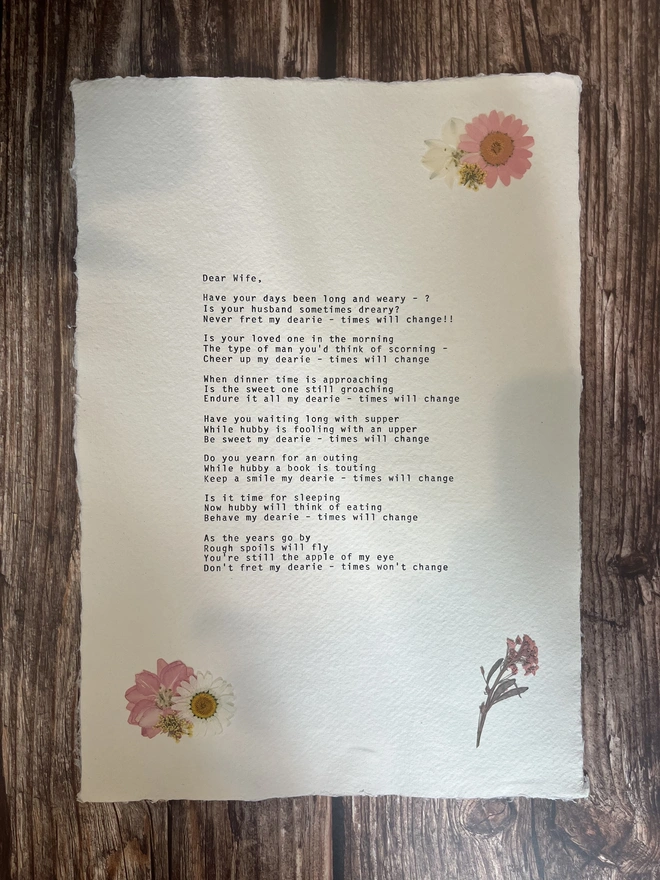 Dear Wife,
Have your days been long and weary - ?
Is your husband sometimes dreary?
Never fret my dearie - times will change!!
Is your loved one in the morning
The type of man you'd think of scorning -
Cheer up my dearie - times will change
When dinner time is approaching
Is the sweet one still groaching
Endure it all my dearie - times will change
Have you waiting long with supper
While hubby is fooling with an upper
Be sweet my dearie - times will change
Do you yearn for an outing
While hubby a book is touting
Keep a smile my dearie - times will change
Is it time for sleeping
Now hubby will think of eating
Behave my dearie - times will change
As the years go by
Rough spoils will fly
You're still the apple of my eye
Don't fret my dearie - times won't change